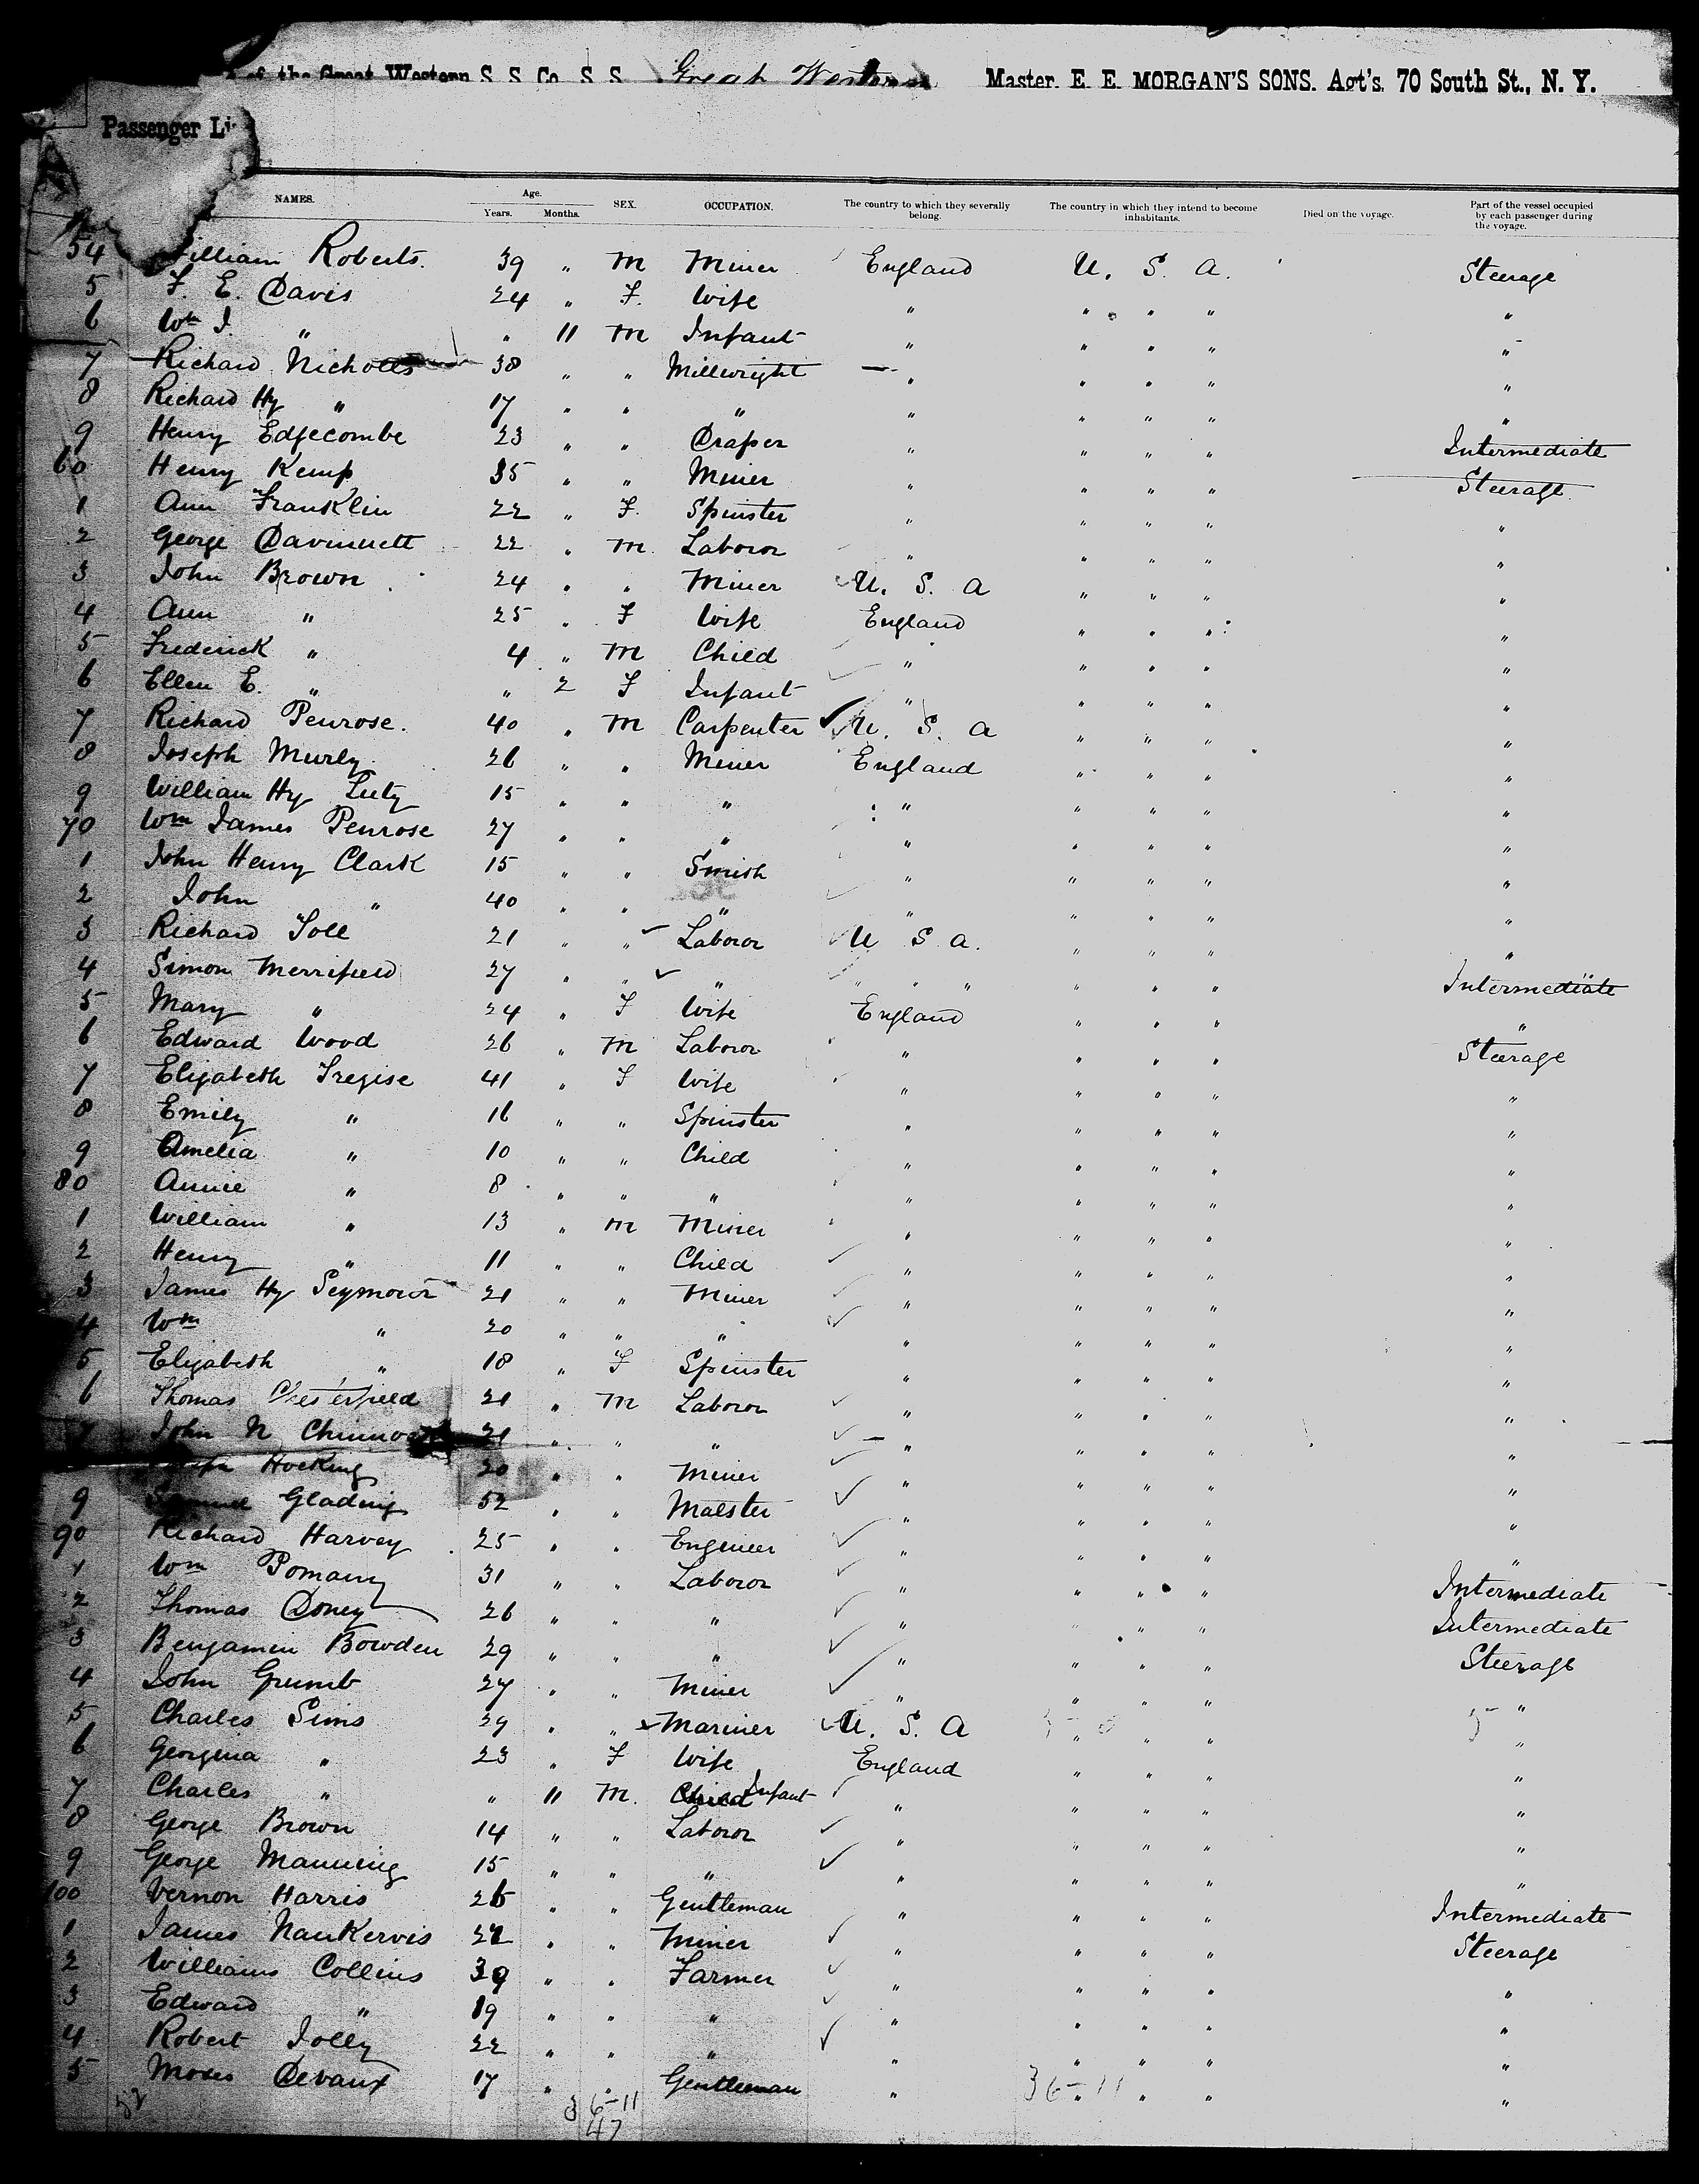 of the Great Western S. S. Co. S. S. Great Western Master. E. E. MORGAN'S SONS. Agt's. 70 South St., N. Y.
Passenger Li
NAMES. Age. Years. Months. SEX. OCCUPATION. The country to which they severally belong. The country in which they intend to become inhabitants. Died on the voyage. Part of the vessel occupied by each passenger during the voyage.
54 William Roberts. 39 " M Miner England U. S. A. Steerage
5 F. E. Davis 24 " F. Wife " " " " "
6 Wm J. " " 11 M Infant " " " " "
7 Richard Nicholls 38 " " Millwright " " " " "
8 Richard Hy " 17 " " " " " " " "
9 Henry Edgecombe 23 " " Draper " " " " Intermediate
60 Henry Kemp 35 " " Miner " " " " Steerage
1 Ann Franklin 22 " F. Spinster " " " " "
2 George 22 " M. Laboror " " " " "
3 John Brown 24 " " Miner U. S. A " " " "
4 Ann " 25 " F Wife England " " " "
5 Frederick " 4 " M Child " " " " "
6 Ellen E. " " 2 F Infant " " " " "
7 Richard Penrose. 40 " M Carpenter U. S. A " " " "
8 Joseph Murly 26 " " Miner England " " " "
9 William Hy Luty 15 " " " " " " " "
70 Wm James Penrose 27 " " " " " " " "
1 John Henry Clark 15 " " Smith " " " " "
2 John " 40 " " " " " " " "
3 Richard Toll 21 " " Laboror U S A. " " " "
4 Simon Merrifield 27 " " " " " " " " " Intermediate
5 Mary " 24 " F Wife England " " " "
6 Edward Wood 26 " M Laboror " " " " Steerage
7 Elizabeth Tregise 41 " F Wife " " " " "
8 Emily " 16 " " Spinster " " " " "
9 Amelia " 10 " " Child " " " " "
80 Annie " 8 " " " " " " " "
1 William " 13 " M Miner " " " " "
2 Henry " 11 " " Child " " " " "
3 James Hy Seymour 21 " " Miner " " " " "
4 Wm " 20 " " " " " " " "
5 Elizabeth " 18 " F Spinster " " " " "
6 Thomas Chesterfield 21 " M Laboror " " " " "
7 John N 21 " " " " " " " "
Hocking 20 " " Miner " " " " "
9 Samuel Glading 52 " " Malster " " " " "
90 Richard Harvey 25 " " Engineer " " " " "
1 Wm Pomany 31 " " Laboror " " " " Intermediate
2 Thomas Doney 26 " " " " " " " Intermediate
3 Benjamin Bowden 29 " " " " " " " Steerage
4 John Grumb 27 " " Miner " " " " "
5 Charles Sims 29 " " Mariner U. S. A " " " "
6 Georgina " 23 " F Wife England " " " "
7 Charles " " 11 M. Child Infant " " " " "
8 George Brown 14 " " Laboror " " " " "
9 George Manning 15 " " " " " " " "
100 Vernon Harris 26 " " Gentleman " " " " Intermediate
1 James Nankervis 22 " " Miner " " " " Steerage
2 Williams Collins 39 " " Farmer " " " " "
3 Edward " 19 " " " " " " " "
4 Robert Jolly 22 " " " " " " " "
5 Moses Devaux 17 " " Gentleman " " " " "
52 36-11 36-11
47